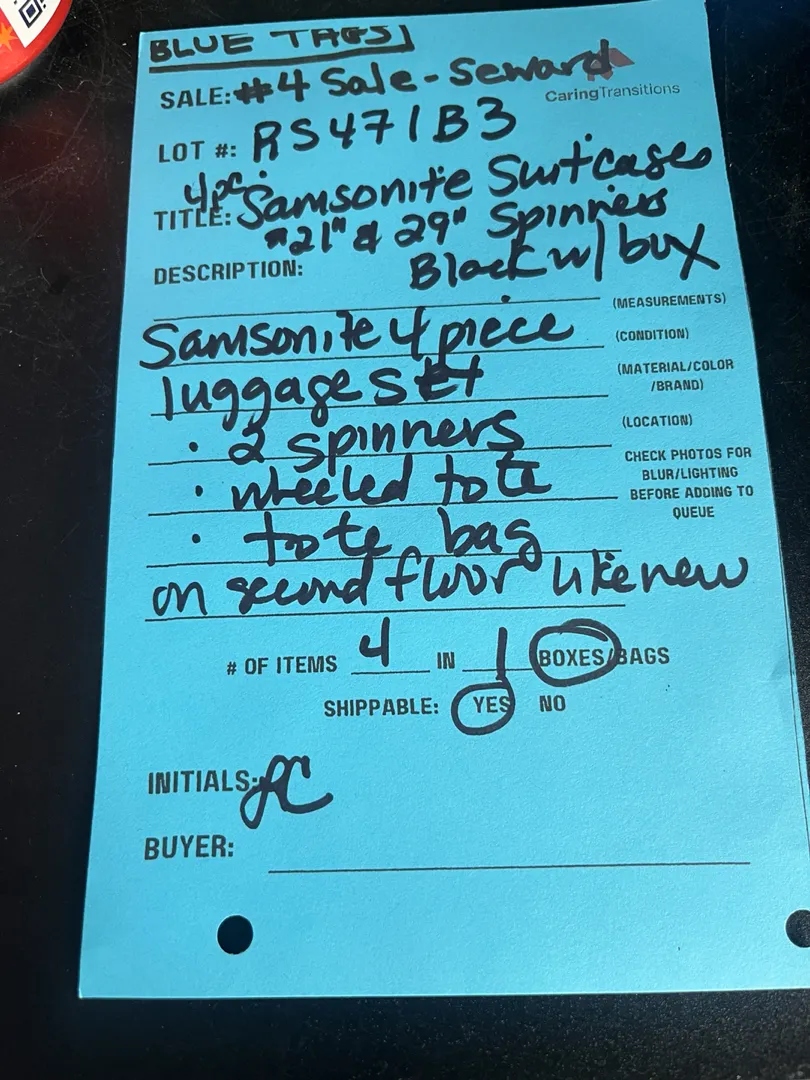 BLUE TAGS
SALE: #4 Sale - Seward
CaringTransitions
LOT #: RS471B3
4pc
TITLE: Samsonite Suitcases
21" & 29" Spinners
DESCRIPTION: Black w/ box
(MEASUREMENTS)
Samsonite 4 piece
(CONDITION)
luggage set
(MATERIAL/COLOR
/BRAND)
· 2 spinners
(LOCATION)
· wheeled tote
CHECK PHOTOS FOR
BLUR/LIGHTING
BEFORE ADDING TO
QUEUE
· tote bag
on second floor like new
# OF ITEMS 4 IN 1 BOXES/BAGS
SHIPPABLE: YES NO
INITIALS: PC
BUYER: